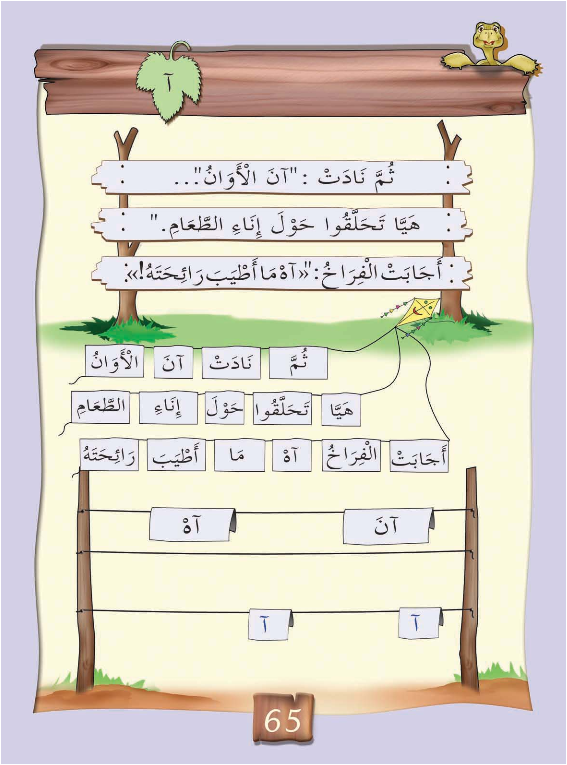 آ
ثُمَّ نَادَتْ : "آنَ الْأَوَانُ"...
هَيَّا تَحَلَّقُوا حَوْلَ إِنَاءِ الطَّعَامِ."
أَجَابَتْ الْفِرَاخُ:"«آهْ مَا أَطْيَبَ رَائِحَتَهُ!»
ثُمَّ نَادَتْ آنَ الْأَوَانُ
هَيَّا تَحَلَّقُوا حَوْلَ إِنَاءِ الطَّعَامِ
أَجَابَتْ الْفِرَاخُ آهْ مَا أَطْيَبَ رَائِحَتَهُ
آنَ آهْ
آ آ
65